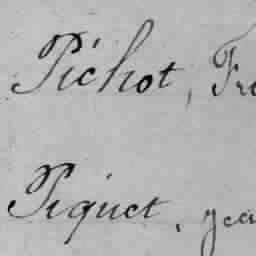 Pichot, Fre
Piquet, jea